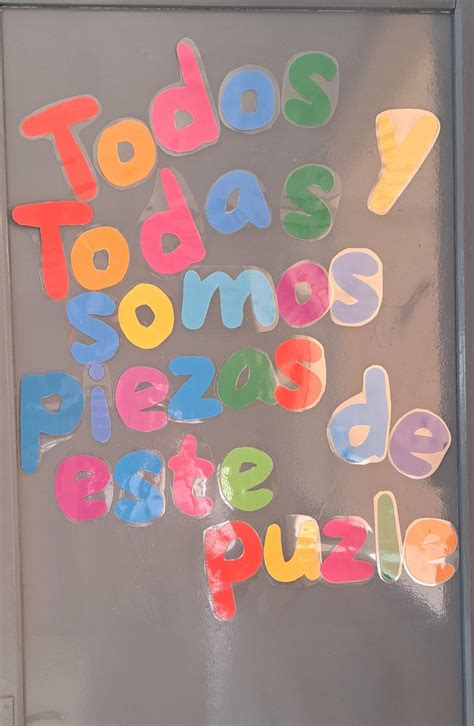 Todos y
Todas
somos
piezas de
este
puzle